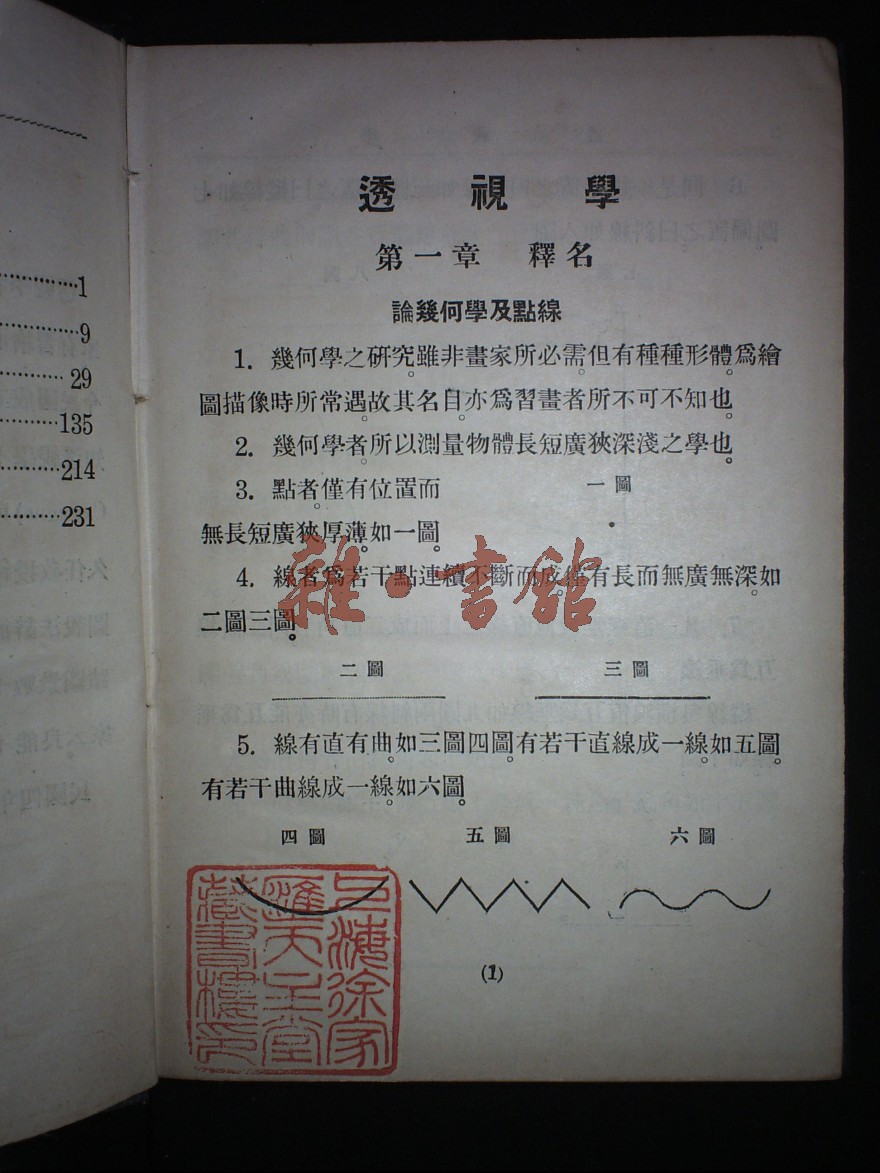 1
9
29
135
214
231
透視學
第一章 釋名
論幾何學及點線
1. 幾何學之研究。雖非畫家所必需。但有種種形體。爲繪
圖描像時所常遇。故其名目。亦爲習畫者所不可不知也。
2. 幾何學者。所以測量物體長短廣狹深淺之學也。
3. 點者。僅有位置而
一圖
無長短廣狹厚薄。如一圖。
4. 線者。爲若干點連續不斷而成。僅有長而無廣無深。如
二圖三圖。
二圖 三圖
5. 線有直有曲。如三圖四圖。有若干直線成一線。如五圖。
有若干曲線成一線。如六圖。
四圖 五圖 六圖
(1)
雜·書館
上海徐家
匯天主堂
藏書樓印